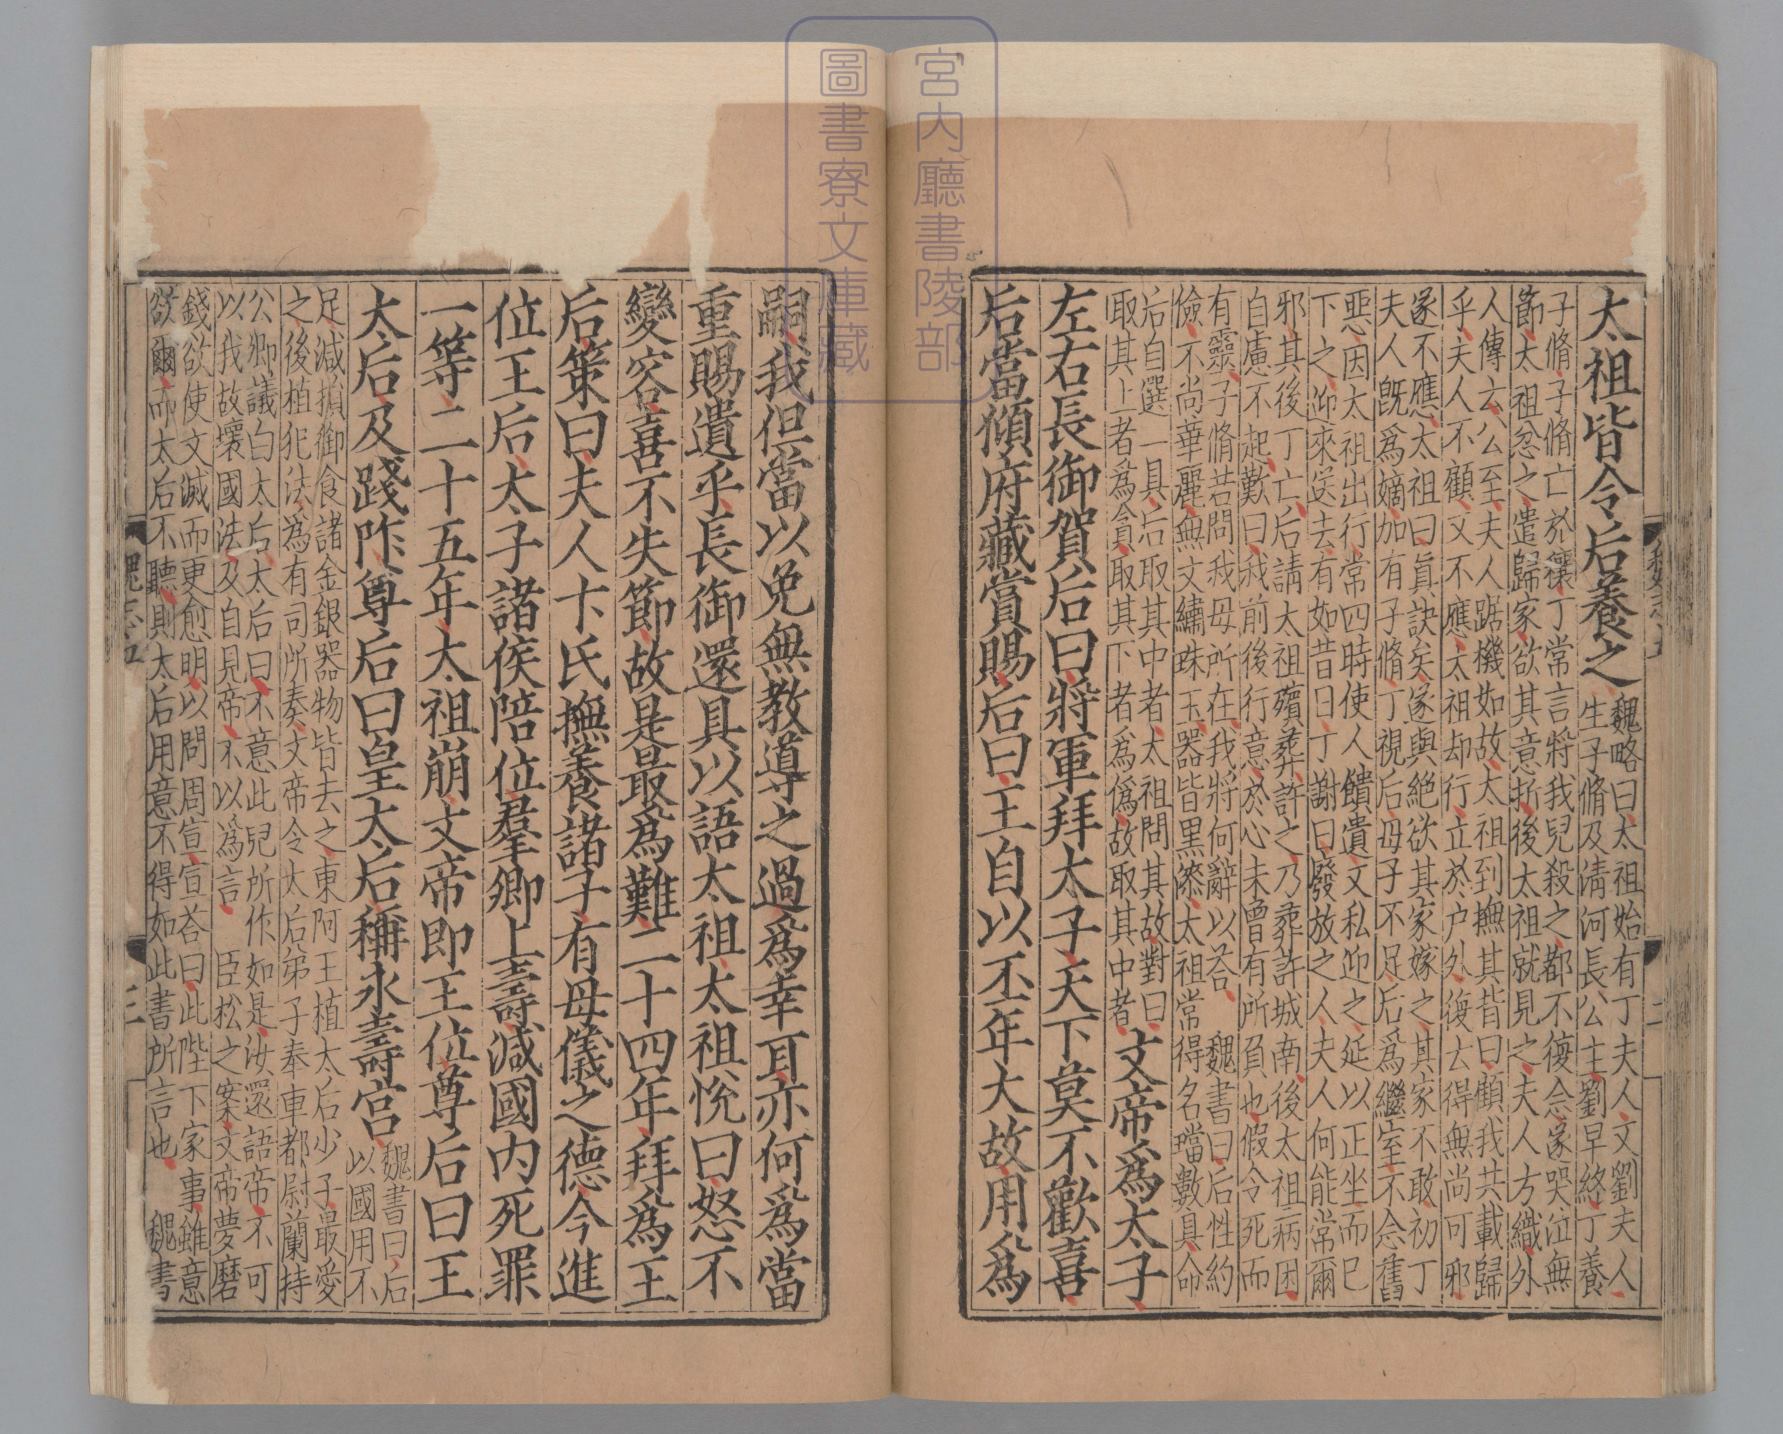 太祖皆令后養之
魏略曰太祖始有丁夫人又劉夫人
生子脩及清河長公主劉早終丁養
子脩子脩亡於穰丁常言將我兒殺之都不復念遂哭泣無
節太祖忿之遣歸家欲其意折後太祖就見之夫人方織外
人傳云公至夫人踞機如故太祖到撫其背曰顧我共載歸
乎夫人不顧又不應太祖却行立於户外復云得無尚可邪
遂不應太祖曰真訣矣遂與絕欲其家嫁之其家不敢初丁
夫人旣爲嫡加有子脩丁視后母子不足后爲繼室不念舊
惡因太祖出行常四時使人饋遺又私迎之延以正坐而已
下之迎來送去有如昔日丁謝曰廢放之人夫人何能常爾
邪其後丁亡后請太祖殯葬許之乃葬許城南後太祖病困
自慮不起歎曰我前後行意於心未曾有所負也假令死而
有靈子脩若問我母所在我將何辭以荅 魏書曰后性約
儉不尚華麗無文繡珠玉器皆黑漆太祖常得名璫數具命
后自選一具后取其中者太祖問其故對曰
取其上者爲貪取其下者爲偽故取其中者
文帝爲太子
左右長御賀后曰將軍拜太子天下莫不歡喜
后當傾府藏賞賜后曰王自以丕年大故用爲
嗣我但當以免無教導之過爲幸耳亦何爲當
重賜遺乎長御還具以語太祖太祖恱曰怒不
變容喜不失節故是最爲難二十四年拜爲王
后策曰夫人卞氏撫養諸子有母儀之德今進
位王后太子諸侯陪位羣卿上壽減國内死罪
一等二十五年太祖崩文帝即王位尊后曰王
太后及踐阼尊后曰皇太后稱永壽宫
魏書曰后
以國用不
足減損御食諸金銀器物皆去之東阿王植太后少子最愛
之後植犯法爲有司所奏文帝令太后弟子奉車都尉蘭持
公卿議白太后太后曰不意此兒所作如是汝還語帝不可
以我故壞國法及自見帝不以爲言 臣松之案文帝夢磨
錢欲使文滅而更愈明以問周宣宣荅曰此陛下家事雖意
欲爾而太后不聽則太后用意不得如此書所言也 魏書
魏志五
三
宮内廳書陵部
圖書寮文庫藏